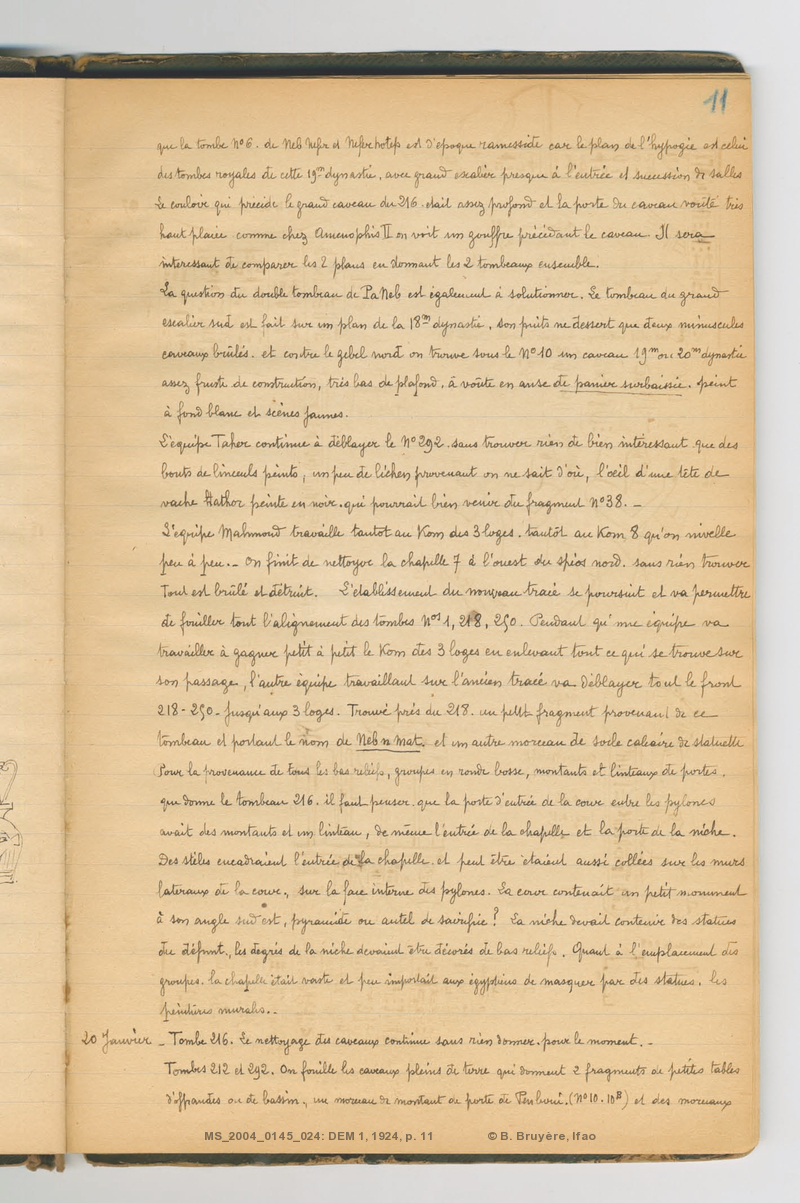 11
que la tombe N°6. de Neb Nefr et Neferhotep est d'époque ramesside car le plan de l'hypogée est celui
des tombes royales de cette 19me dynastie, avec grand escalier presque à l'entrée et succession de salles
Le couloir qui précède le grand caveau du 216. était assez profond et la porte du caveau voûté très
haut placée comme chez Amenophis II on voit un gouffre précédant le caveau. Il sera
intéressant de comparer les 2 plans en donnant les 2 tombeaux ensemble.
La question du double tombeau de PaNeb est également à solutionner. Le tombeau du grand
escalier sud est fait sur un plan de la 18me dynastie, son puits ne dessert que deux minuscules
caveaux brûlés. et contre le gebel nord on trouve sous le N°10 un caveau 19me ou 20me dynastie
assez fruste de construction, très bas de plafond, à voûte en anse de panier surbaissée. peint
à fond blanc et scènes jaunes.
L'équipe Taher continue à déblayer le N°292. sans trouver rien de bien intéressant que des
bouts de linceuls peints, un peu de lichen provenant on ne sait d'où, l'oeil d'une tête de
vache Hathor peinte en noir. qui pourrait bien venir du fragment N°38. _
L'équipe Mahmoud travaille tantôt au Kom des 3 loges. tantôt au Kom 8 qu'on nivelle
peu à peu. _ On finit de nettoyer la chapelle 7 à l'ouest du spéos nord. sans rien trouver
Tout est brûlé et détruit. L'établissement du nouveau tracé se poursuit et va permettre
de fouiller tout l'alignement des tombes Nos 1, 218, 290. Pendant qu'une équipe va
travailler à gagner petit à petit le Kom des 3 loges en enlevant tout ce qui se trouve sur
son passage, l'autre équipe travaillant sur l'ancien tracé va déblayer tout le front
218-290- jusqu'aux 3 loges. Trouvé près du 218. un petit fragment provenant de ce
tombeau et portant le nom de Neb n mat. et un autre morceau de socle calcaire de statuette
Pour la provenance de tous les bas reliefs, groupes en ronde bosse, montants et linteaux de portes.
que donne le tombeau 216. il faut penser que la porte d'entrée de la cour entre les pylones
avait des montants et un linteau, de même l'entrée de la chapelle et la porte de la niche.
Des stèles encadraient l'entrée de la chapelle. et peut être étaient aussi collées sur les murs
latéraux de la cour, sur la face interne des pylones. La cour contenait un petit monument
à son angle sud est, pyramide ou autel de sacrifice? La niche devait contenir des statues
du défunt., les degrés de la niche devaient être décorés de bas reliefs. Quant à l'emplacement des
groupes. la chapelle était vaste et peu importait aux égyptiens de masquer par des statues. les
peintures murales._
20 Janvier _ Tombe 216. Le nettoyage des caveaux continue sans rien donner. pour le moment. _
Tombes 212 et 292. On fouille les caveaux pleins de terre qui donnent 2 fragments de petites tables
d'offrandes ou de bassin., un morceau de montant de porte de Penbui. (N°10.10B) et des morceaux
MS_2004_0145_024: DEM 1, 1924, p. 11 © B. Bruyère, Ifao